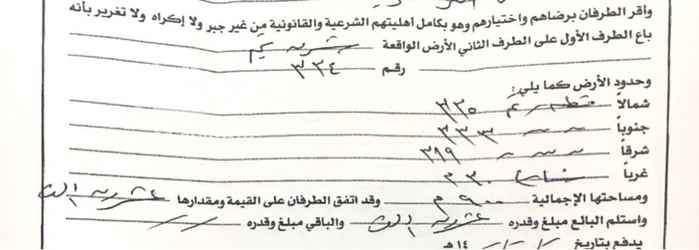 وأقر الطرفان برضاهم واختيارهم وهو بكامل أهليتهم الشرعية والقانونية من غير جبر ولا إكراه ولا تغرير بأنه
باع الطرف الأول على الطرف الثاني الأرض الواقعة
رقم ٣٣٤
وحدود الأرض كما يلي:
شمالاً قطعة رقم ٣٣٥
جنوباً ~ ~ ٣٣٣
شرقاً ~ ~ ٣١٩
غرباً شارع ٣٠ م
ومساحتها الإجمالية ٩٠٠ م وقد اتفق الطرفان على القيمة ومقدارها عشرين الف
واستلم البائع مبلغ وقدره عشرين الف والباقي مبلغ وقدره //
يدفع بتاريخ / / ١٤هـ